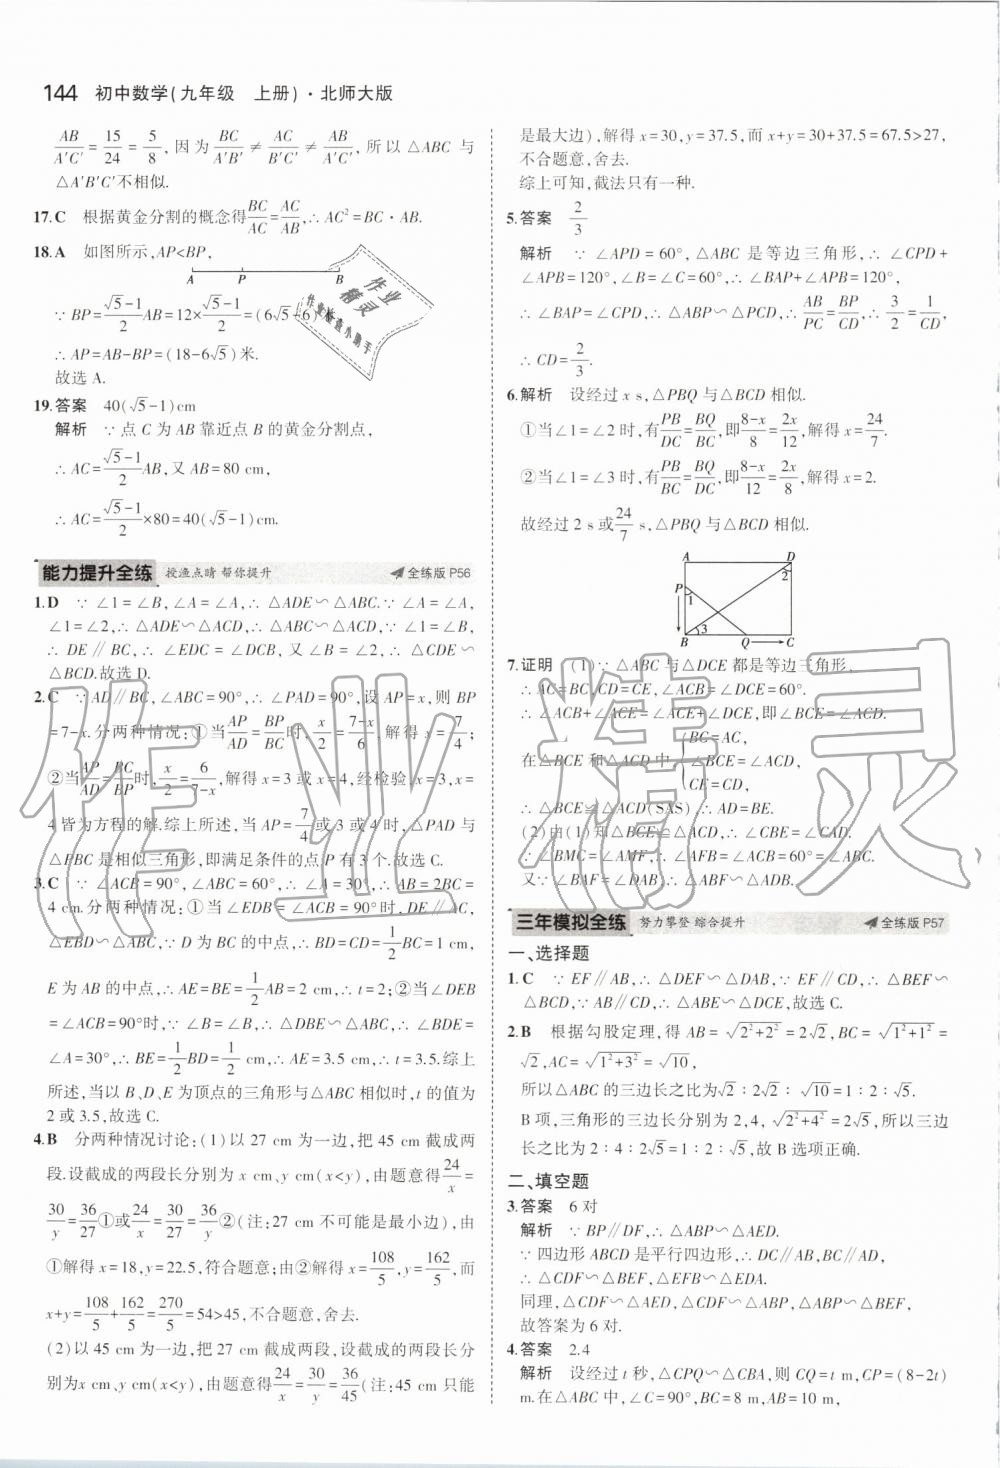 144 初中数学(九年级 上册)·北师大版
AB/A′C′=15/24=5/8,因为BC/A′B′≠AC/B′C′≠AB/A′C′,所以△ABC与
△A′B′C′不相似.
17.C 根据黄金分割的概念得BC/AC=AC/AB,∴AC²=BC·AB.
18.A 如图所示,AP<BP,
A P B
∵BP=(√5-1)/2 AB=12×(√5-1)/2=(6√5-6)
∴AP=AB-BP=(18-6√5)米.
故选A.
19.答案 40(√5-1)cm
解析 ∵点C为AB靠近点B的黄金分割点,
∴AC=(√5-1)/2 AB,又AB=80 cm,
∴AC=(√5-1)/2×80=40(√5-1)cm.
能力提升全练 授渔点睛 帮你提升 全练版P56
1.D ∵∠1=∠B,∠A=∠A,∴△ADE∽△ABC.∵∠A=∠A,
∠1=∠2,∴△ADE∽△ACD,∴△ABC∽△ACD,∵∠1=∠B,
∴DE∥BC,∴∠EDC=∠DCB,又∠B=∠2,∴△CDE∽
△BCD.故选D.
2.C ∵AD∥BC,∠ABC=90°,∴∠PAD=90°,设AP=x,则BP
=7-x.分两种情况:①当AP/AD=BP/BC时,x/2=(7-x)/6,解得x=7/4;
②当AP/AD=BC/BP时,x/2=6/(7-x),解得x=3或x=4,经检验,x=3,x=
4皆为方程的解.综上所述,当AP=7/4或3或4时,△PAD与
△PBC是相似三角形,即满足条件的点P有3个.故选C.
3.C ∵∠ACB=90°,∠ABC=60°,∴∠A=30°,∴AB=2BC=
4 cm.分两种情况:①当∠EDB=∠ACB=90°时,DE∥AC,
△EBD∽△ABC,∵D为BC的中点,∴BD=CD=1/2BC=1 cm,
E为AB的中点,∴AE=BE=1/2AB=2 cm,∴t=2;②当∠DEB
=∠ACB=90°时,∵∠B=∠B,∴△DBE∽△ABC,∴∠BDE=
∠A=30°,∴BE=1/2BD=1/2 cm,∴AE=3.5 cm,∴t=3.5.综上
所述,当以B、D、E为顶点的三角形与△ABC相似时,t的值为
2或3.5,故选C.
4.B 分两种情况讨论:(1)以27 cm为一边,把45 cm截成两
段.设截成的两段长分别为x cm,y cm(x<y),由题意得24/x=
30/y=36/27①或24/x=30/27=36/y②(注:27 cm不可能是最小边),由
①解得x=18,y=22.5,符合题意;由②解得x=108/5,y=162/5,而
x+y=108/5+162/5=270/5=54>45,不合题意,舍去.
(2)以45 cm为一边,把27 cm截成两段,设截成的两段长分别
为x cm,y cm(x<y),由题意得24/x=30/y=36/45(注:45 cm只能
是最大边),解得x=30,y=37.5,而x+y=30+37.5=67.5>27,
不合题意,舍去.
综上可知,截法只有一种.
5.答案 2/3
解析 ∵∠APD=60°,△ABC是等边三角形,∴∠CPD+
∠APB=120°,∠B=∠C=60°,∴∠BAP+∠APB=120°,
∴∠BAP=∠CPD,∴△ABP∽△PCD,∴AB/PC=BP/CD,∴3/2=1/CD,
∴CD=2/3.
6.解析 设经过x s,△PBQ与△BCD相似.
①当∠1=∠2时,有PB/DC=BQ/BC,即(8-x)/8=2x/12,解得x=24/7.
②当∠1=∠3时,有PB/BC=BQ/DC,即(8-x)/12=2x/8,解得x=2.
故经过2 s或24/7 s,△PBQ与△BCD相似.
A D
2
P 1
3
B Q C
7.证明 (1)∵△ABC与△DCE都是等边三角形,
∴AC=BC,CD=CE,∠ACB=∠DCE=60°.
∴∠ACB+∠ACE=∠ACE+∠DCE,即∠BCE=∠ACD.
在△BCE和△ACD中,{BC=AC,
∠BCE=∠ACD,
CE=CD,
∴△BCE≌△ACD(SAS).∴AD=BE.
(2)由(1)知△BCE≌△ACD,∴∠CBE=∠CAD.
∵∠BMC=∠AMF,∴∠AFB=∠ACB=60°=∠ABC.
又∵∠BAF=∠DAB,∴△ABF∽△ADB.
三年模拟全练 努力攀登 综合提升 全练版P57
一、选择题
1.C ∵EF∥AB,∴△DEF∽△DAB,∵EF∥CD,∴△BEF∽
△BCD,∵AB∥CD,∴△ABE∽△DCE,故选C.
2.B 根据勾股定理,得AB=√(2²+2²)=2√2,BC=√(1²+1²)=
√2,AC=√(1²+3²)=√10,
所以△ABC的三边长之比为√2∶2√2∶√10=1∶2∶√5.
B项,三角形的三边长分别为2,4,√(2²+4²)=2√5,所以三边
长之比为2∶4∶2√5=1∶2∶√5,故B选项正确.
二、填空题
3.答案 6对
解析 ∵BP∥DF,∴△ABP∽△AED.
∵四边形ABCD是平行四边形,∴DC∥AB,BC∥AD,
∴△CDF∽△BEF,△EFB∽△EDA.
同理,△CDF∽△AED,△CDF∽△ABP,△ABP∽△BEF,
故答案为6对.
4.答案 2.4
解析 设经过t秒,△CPQ∽△CBA,则CQ=t m,CP=(8-2t)
m.在△ABC中,∠C=90°,BC=8 m,AB=10 m,
作业精灵
作业精灵
作业检查小助手